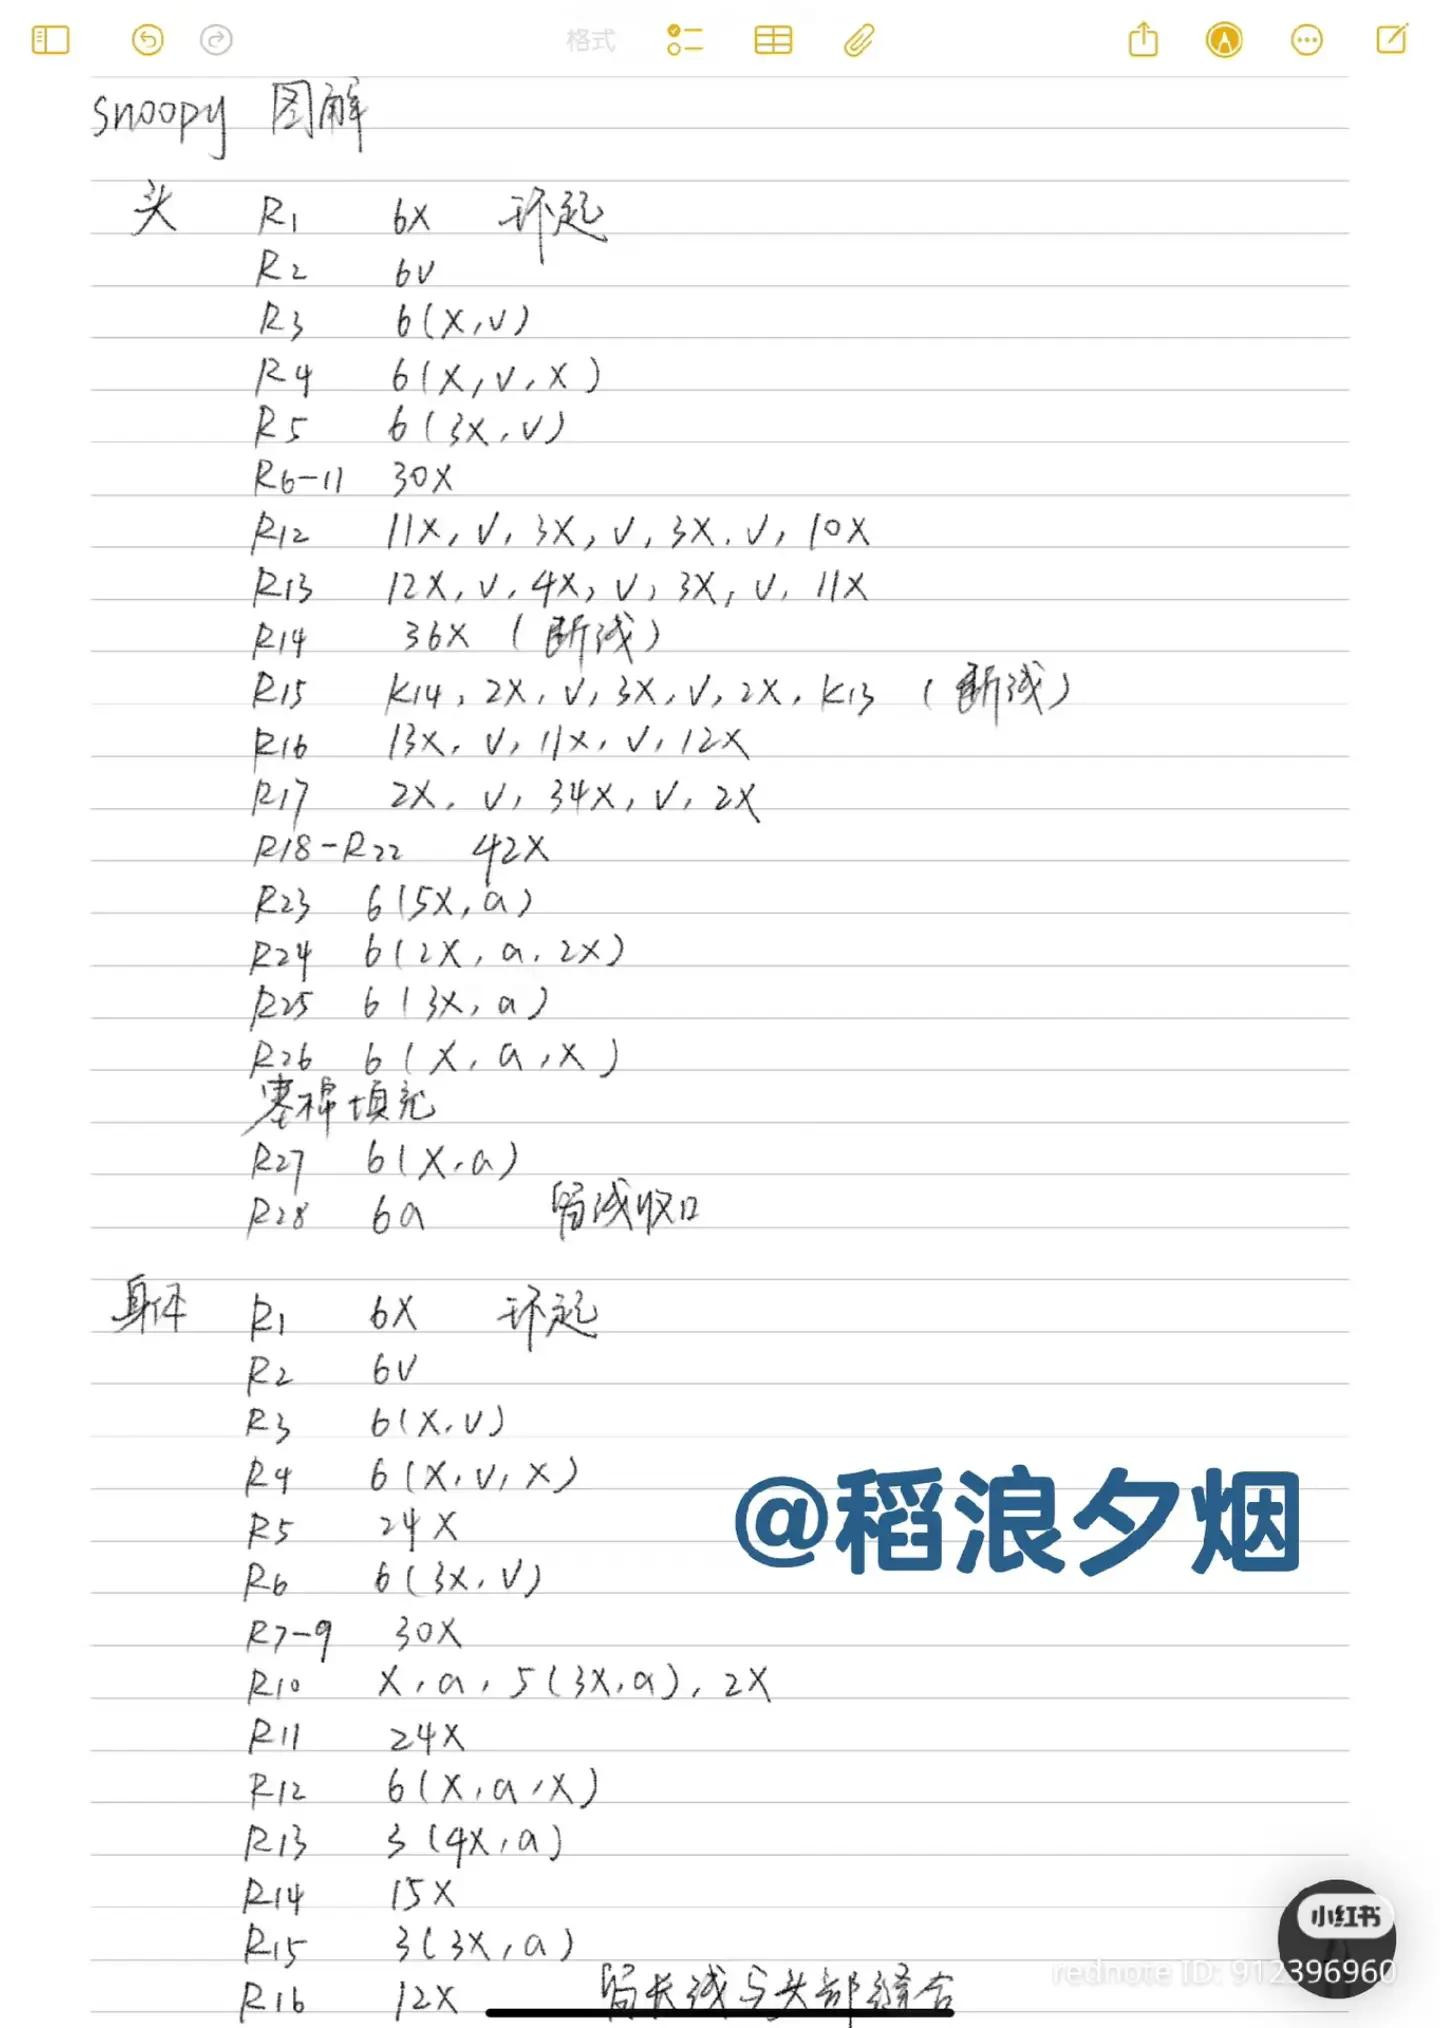 格式
snoopy 图解
头 R1 6X 环起
R2 6V
R3 6(X,V)
R4 6(X,V,X)
R5 6(3X,V)
R6-11 30X
R12 11X,V,3X,V,3X,V,10X
R13 12X,V,4X,V,3X,V,11X
R14 36X (断线)
R15 K14,2X,V,3X,V,2X,K13 (断线)
R16 13X,V,11X,V,12X
R17 2X,V,34X,V,2X
R18-R22 42X
R23 6(5X,a)
R24 6(2X,a,2X)
R25 6(3X,a)
R26 6(X,a,X)
塞棉填充
R27 6(X,a)
R28 6a 留线收口
身体 R1 6X 环起
R2 6V
R3 6(X,V)
R4 6(X,V,X)
R5 24X
R6 6(3X,V)
R7-9 30X
R10 X,a,5(3X,a),2X
R11 24X
R12 6(X,a,X)
R13 3(4X,a)
R14 15X
R15 3(3X,a)
R16 12X 留长线与头部缝合
@稻浪夕烟
小红书
rednote ID: 912396960